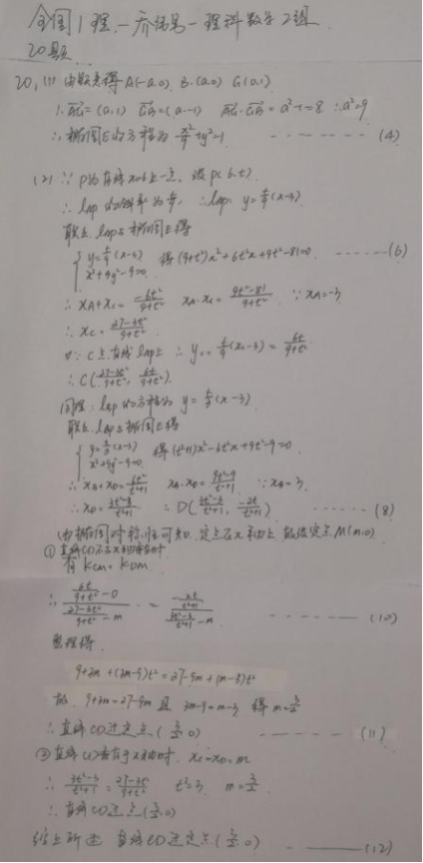 全国1理一乔伟号一理科数学2组
20题
20,(1) 由题意得 A(-a,0) B(a,0) G(0,1)
∴ AG=(a,1) GB=(a,-1) AG·GB=a²-1=8 ∴a²=9
∴椭圆E的方程为 x²/9+y²=1 (4)
(2) ∵ P为直线x=6上一点, 设P(6,t)
∴ lAP的斜率为 t/9, ∴lAP: y=t/9(x+3)
联立 lAP与椭圆E得
x²+9y²-9=0 得(9+t²)x²+6t²x+9t²-81=0 (6)
∴ xA+xC=-6t²/(9+t²) xA·xC=(9t²-81)/(9+t²) ∵xA=-3
∴ xC=(27-3t²)/(9+t²)
∵ C在直线lAP上 ∴ yC=t/9(xC+3)=6t/(9+t²)
∴ C((27-3t²)/(9+t²), 6t/(9+t²))
同理: lBP的方程为 y=t/3(x-3)
联立 lBP与椭圆E得
y=t/3(x-3)
x²+9y²-9=0 得(t²+1)x²-6t²x+9t²-9=0
∴ xB+xD=6t²/(t²+1) xB·xD=(9t²-9)/(t²+1) ∵xB=3
∴ xD=(3t²-3)/(t²+1) ∴ D((3t²-3)/(t²+1), -2t/(t²+1)) (8)
由椭圆对称性可知, 定点在x轴上, 故设定点M(m,0)
① 直线CD不与x轴垂直时
有 kCM=kDM
∴ (6t/(9+t²)-0)/((27-3t²)/(9+t²)-m) = (-2t/(t²+1))/((3t²-3)/(t²+1)-m) (10)
整理得
9+3m+(3m-9)t²=27-9m+(m-3)t²
故 9+3m=27-9m 且 3m-9=m-3 得 m=3/2
∴ 直线CD过定点(3/2,0) (11)
② 直线CD垂直于x轴时, xC=xD=m
∴ (3t²-3)/(t²+1)=(27-3t²)/(9+t²) t²=3 m=3/2
∴ 直线CD过点(3/2,0)
综上所述 直线CD过定点(3/2,0) (12)